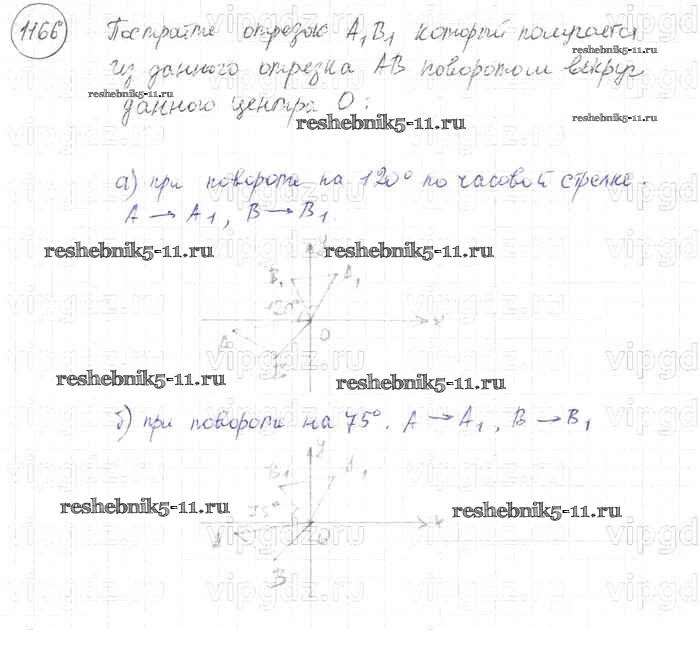 1166 Постройте отрезок A₁B₁ который получается
из данного отрезка AB поворотом вокруг
данного центра O:
reshebnik5-11.ru
reshebnik5-11.ru
reshebnik5-11.ru
reshebnik5-11.ru
а) при повороте на 120° по часовой стрелке.
A → A₁, B → B₁.
reshebnik5-11.ru
reshebnik5-11.ru
y
B₁ A₁
120°
x
A O
B
reshebnik5-11.ru
reshebnik5-11.ru
б) при повороте на 75°. A → A₁, B → B₁
y
B₁ A₁
reshebnik5-11.ru
75°
reshebnik5-11.ru
x
A O
B
vipgdz.ru